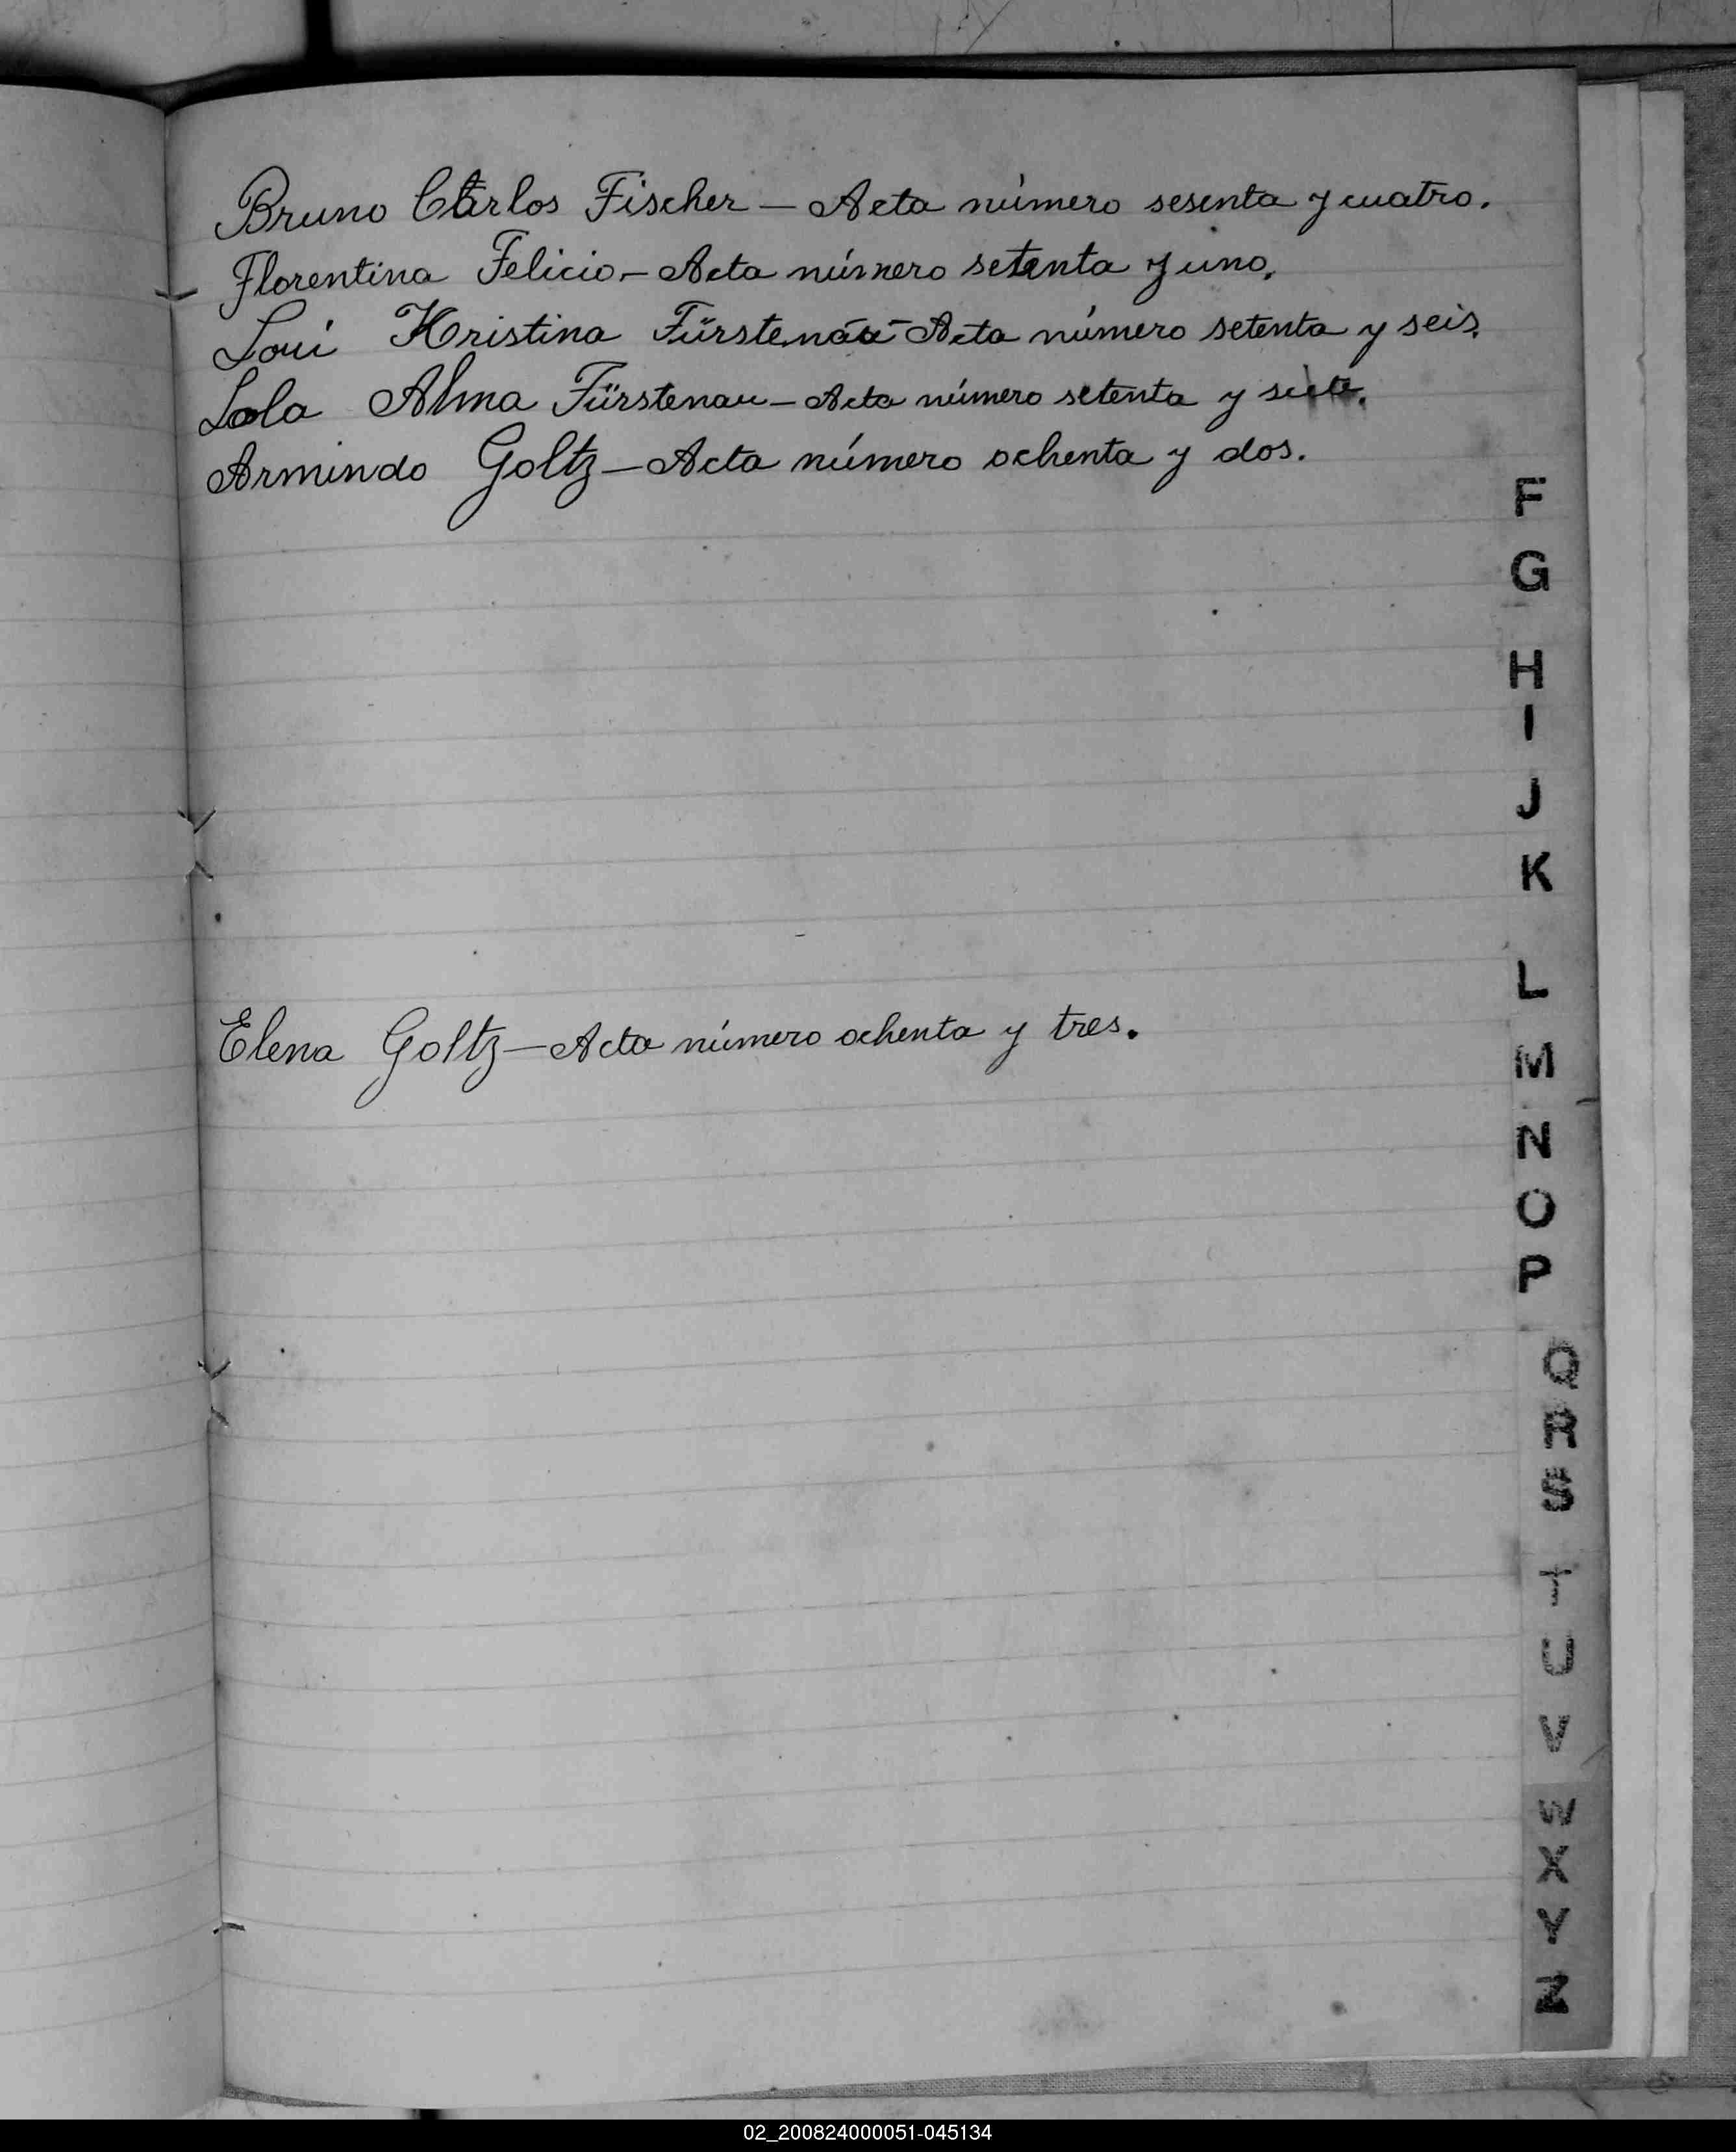 Bruno Carlos Fischer — Acta número sesenta y cuatro.
Florentina Felicio. — Acta número setenta y uno.
Loui Kristina Fürstenau — Acta número setenta y seis.
Lola Alma Fürstenau — Acta número setenta y siete.
Armindo Goltz — Acta número ochenta y dos.
F
G
H
I
J
K
L
Elena Goltz — Acta número ochenta y tres.
M
N
O
P
Q
R
S
T
U
V
W
X
Y
Z
02_200824000051-045134